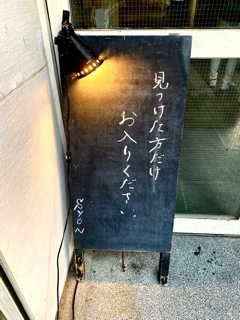 見つけた方だけ
お入りください。